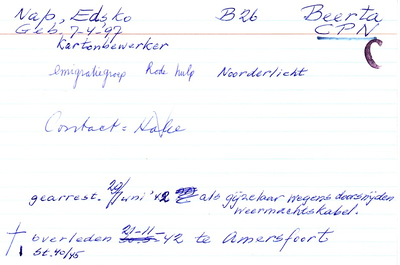 Nap, Edsko B26 Beerta
Geb. 7-4-97 CPN
Kartonbewerker C
emigratiegroep Rode hulp Noorderlicht
Contact = Hake
20/
gearrest. Juni '42 als gijzelaar wegens doorsnijden
weermachtskabel.
† overleden 21-11-42 te Amersfoort
↓ St. 40/45